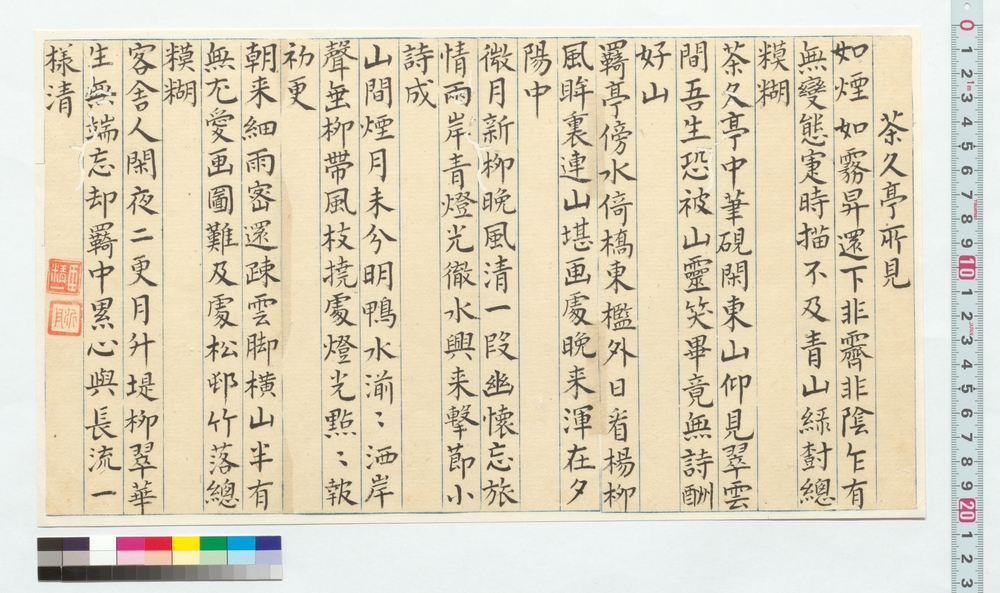 茶久亭所見
如煙如霧昇還下非霽非陰乍有
無變態寔時描不及青山緑樹總
糢糊
茶久亭中筆硯閑東山仰見翠雲
間吾生恐被山靈笑畢竟無詩酬
好山
羇亭傍水倚橋東檻外日看楊柳
風眸裏連山堪画處晩来渾在夕
陽中
微月新柳晩風清一段幽懷忘旅
情兩岸青燈光徹水興来擊節小
詩成
山間煙月未分明鴨水湔〻洒岸
聲垂柳帶風枝撓處燈光點〻報
初更
朝来細雨密還疎雲脚横山半有
無尤愛画圖難及處松邨竹落總
糢糊
客舎人閑夜二更月升堤柳翠華
生無端忘却羇中累心與長流一
様清
0 1 2 3 4 5 6 7 8 9 10 1 2 3 4 5 6 7 8 9 20 1 2 3